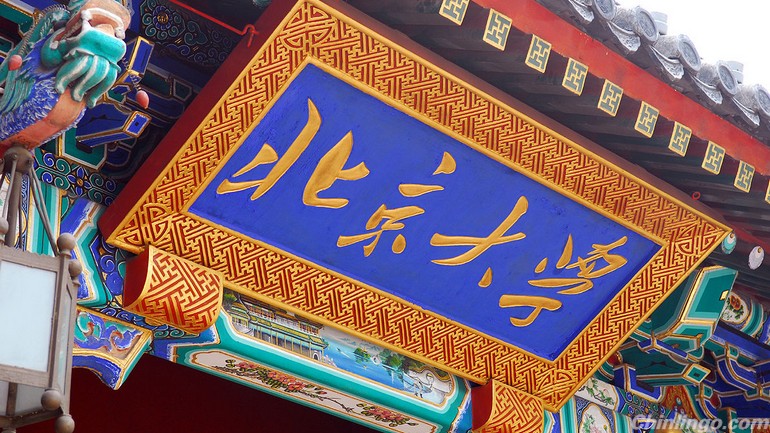 北京大学
©hinlingo.com